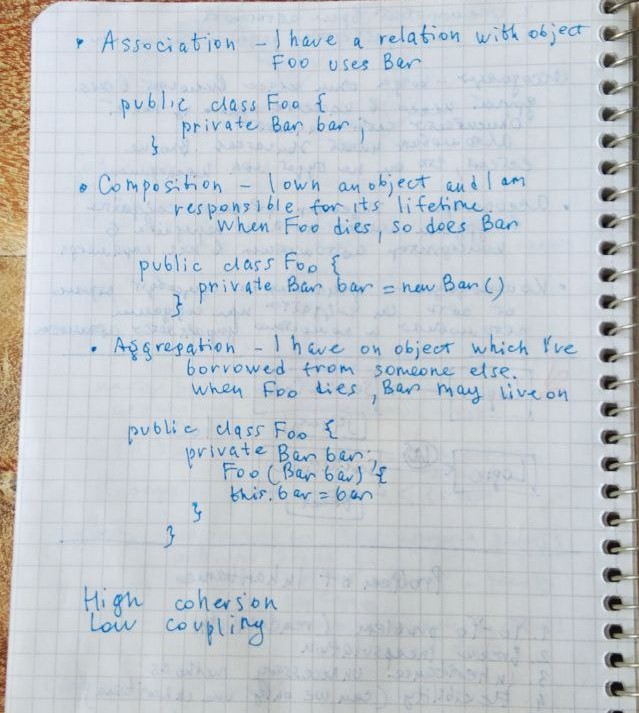 • Association - I have a relation with object
Foo uses Bar
public class Foo {
private Bar bar;
}
• Composition - I own an object and I am
responsible for its lifetime.
When Foo dies, so does Bar
public class Foo {
private Bar bar = new Bar()
}
• Aggregation - I have on object which I've
borrowed from someone else.
When Foo dies, Bar may live on
public class Foo {
private Bar bar;
Foo (Bar bar) {
this.bar = bar
}
}
High cohersion
Low coupling